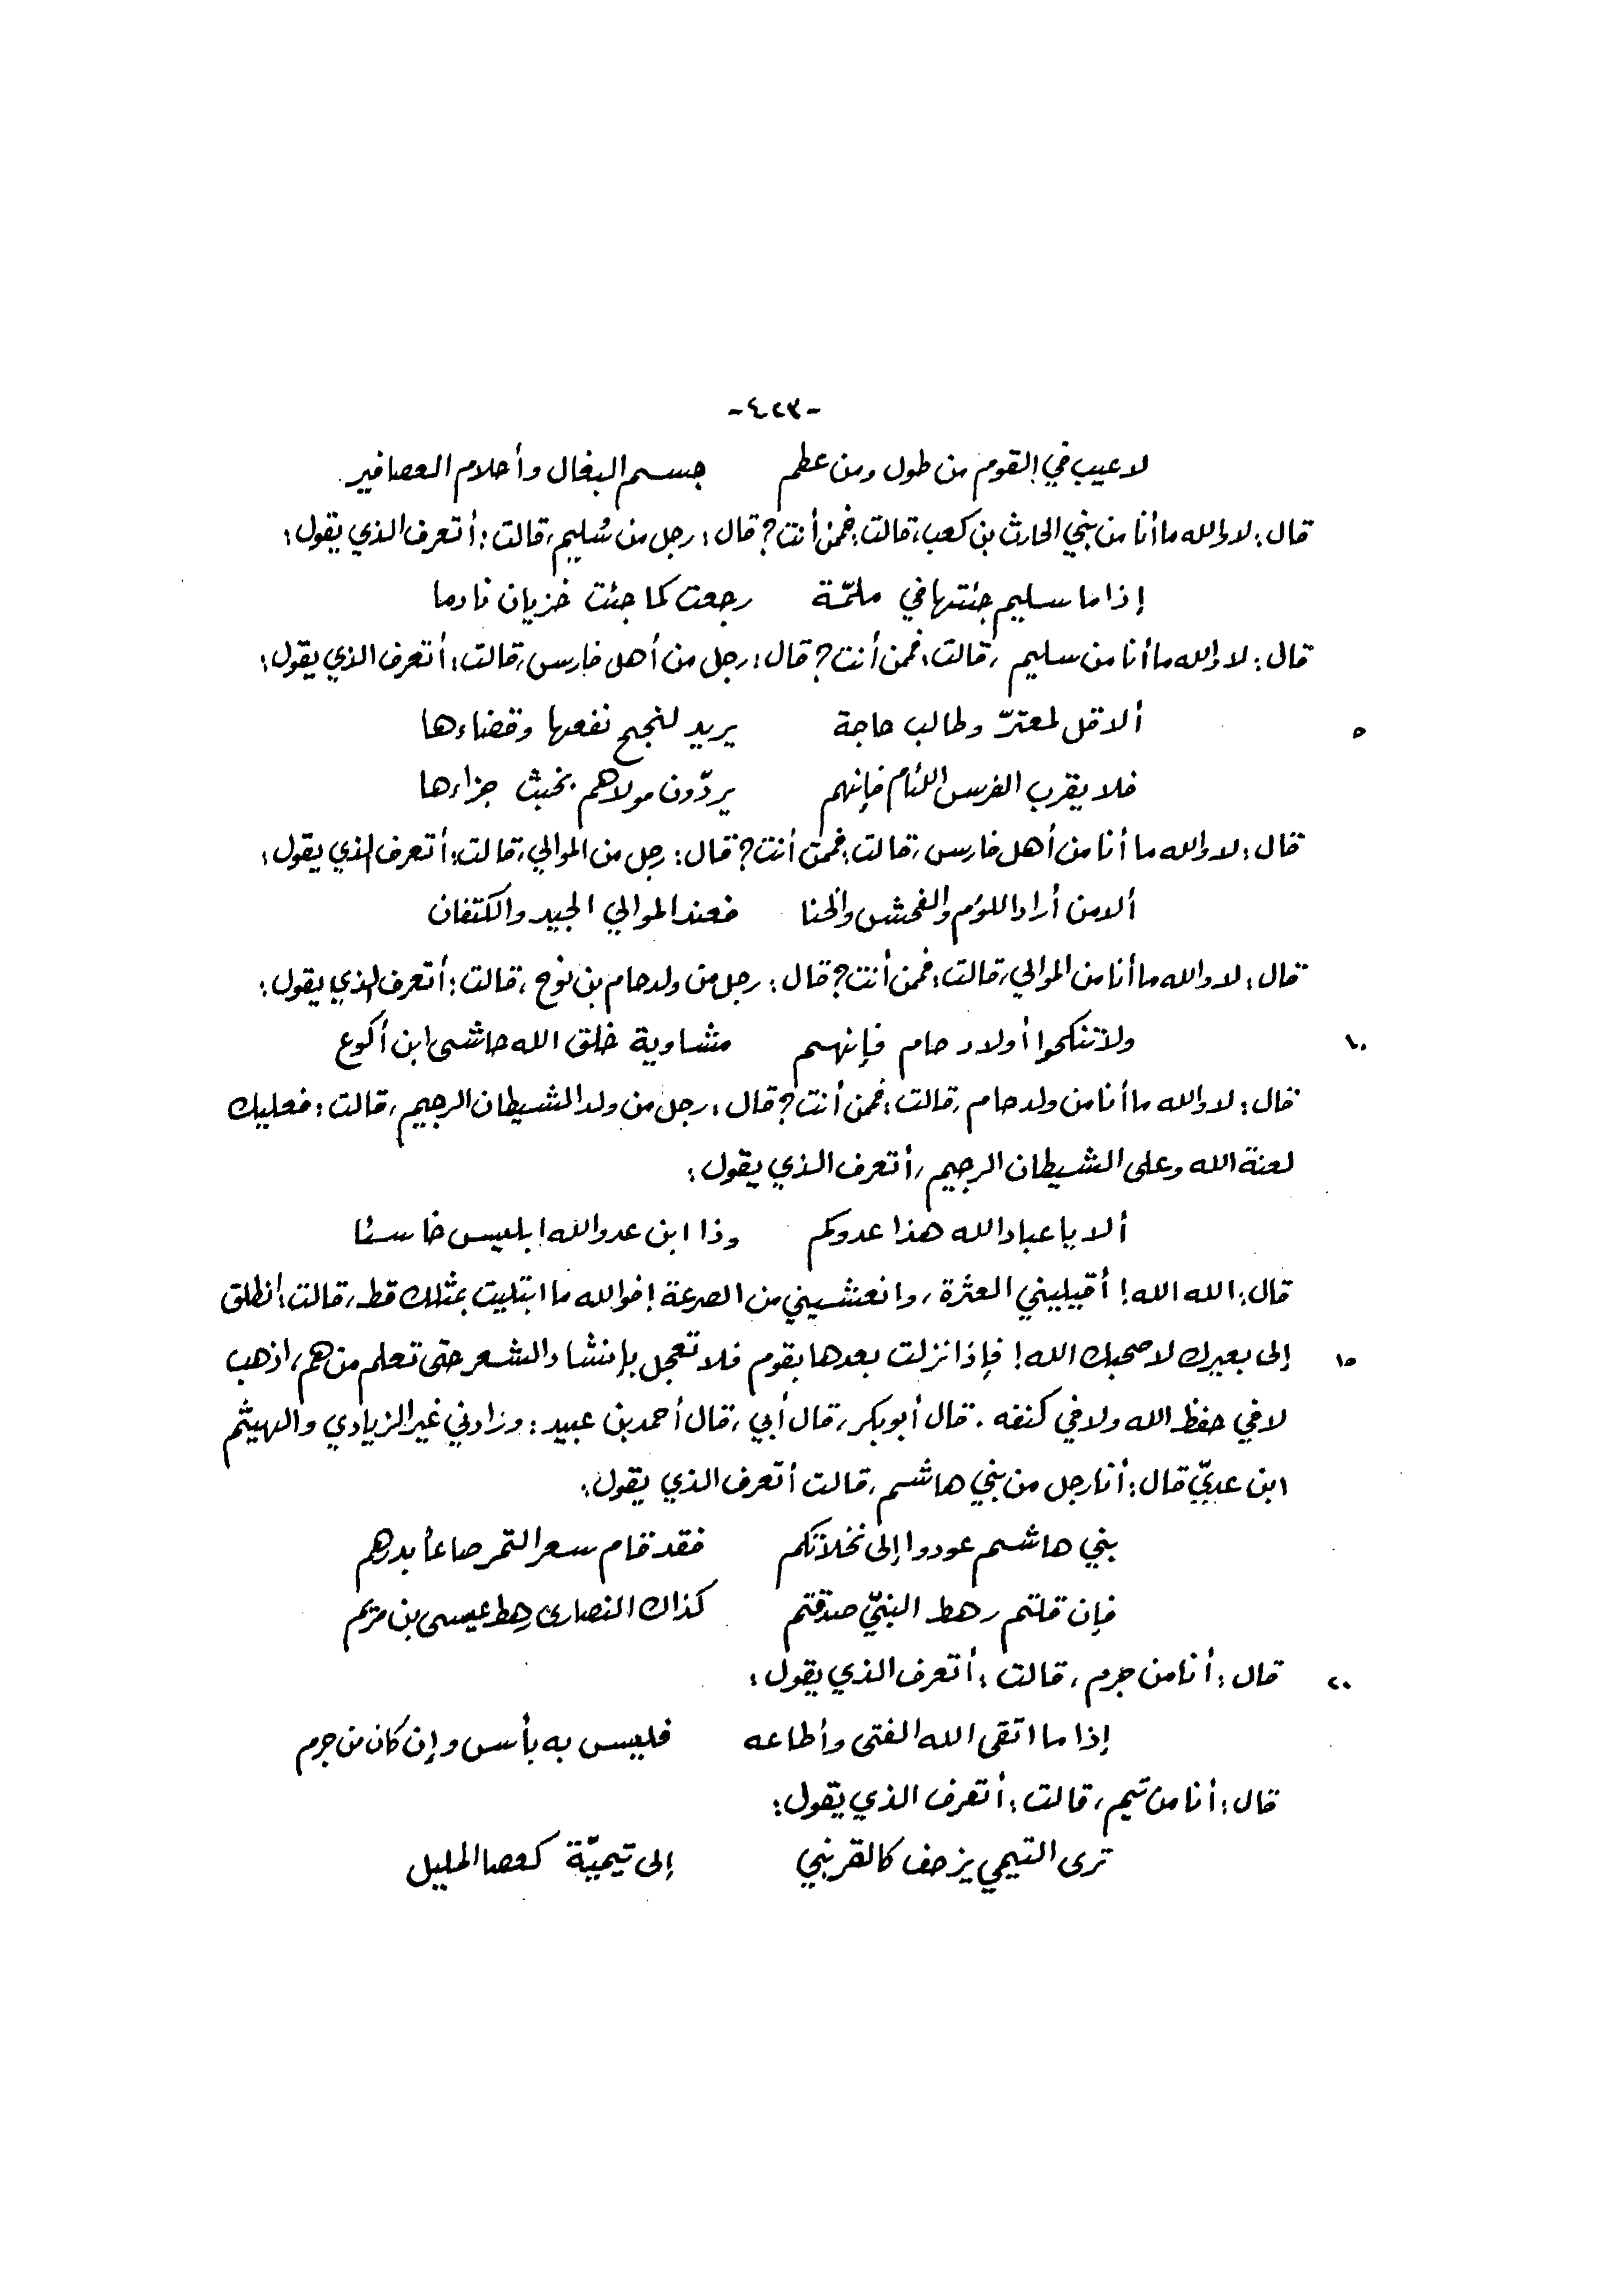 -٤٢٣-
لا عيب في القوم من طول ومن عظم جسم البغال وأحلام العصافير
قال: لا والله ما أنا من بني الحارث بن كعب، قالت: فمن أنت؟ قال: رجل من سُليم، قالت: أتعرف الذي يقول:
إذا ما سليم جئتها في ملمّة رجعت كما جئت خزيان نادما
قال: لا والله ما أنا من سليم، قالت: فمن أنت؟ قال: رجل من أهل فارس، قالت: أتعرف الذي يقول:
٥ ألا قل لمعترّ وطالب حاجة يريد لنجح نفعها وقضاءها
فلا يقرب الفرس اللئام فإنهم يردّون مولاهم بخبث جزاءها
قال: لا والله ما أنا من أهل فارس، قالت: فمن أنت؟ قال: رجل من الموالي، قالت: أتعرف الذي يقول:
ألا من أراد اللؤم والفحش والخنا فعند الموالي الجيد والكتفان
قال: لا والله ما أنا من الموالي، قالت: فمن أنت؟ قال: رجل من ولد حام بن نوح، قالت: أتعرف الذي يقول:
١٠ ولا تنكحوا أولاد حام فإنهم مشاوية خلق الله حاشى ابن أكوع
قال: لا والله ما أنا من ولد حام، قالت: فمن أنت؟ قال: رجل من ولد الشيطان الرجيم، قالت: فعليك
لعنة الله وعلى الشيطان الرجيم، أتعرف الذي يقول:
ألا يا عباد الله هذا عدوكم وذا ابن عدو الله إبليس خاسئا
قال: الله الله! أقيليني العثرة، وانعشيني من الصرعة! فوالله ما ابتليت بمثلك قط، قالت: انطلق
١٥ إلى بعيرك لا صحبك الله! فإذا نزلت بعدها بقوم فلا تعجل بإنشاد الشعر حتى تعلم من هم، اذهب
لا في حفظ الله ولا في كنفه. قال أبو بكر، قال أبي، قال أحمد بن عبيد: وزادني غير الزيادي والهيثم
ابن عديّ قال: أنا رجل من بني هاشم، قالت أتعرف الذي يقول:
بني هاشم عودوا إلى نخلاتكم فقد قام سعر التمر صاعاً بدرهم
فإن قلتم رهط النبيّ صدقتم كذاك النصارى رهط عيسى بن مريم
٢٠ قال: أنا من جرم، قالت: أتعرف الذي يقول:
إذا ما اتقى الله الفتى وأطاعه فليس به بأس وإن كان من جرم
قال: أنا من تيم، قالت: أتعرف الذي يقول:
ترى التيمي يزحف كالقرنبي إلى تيميّة كعصا المليل